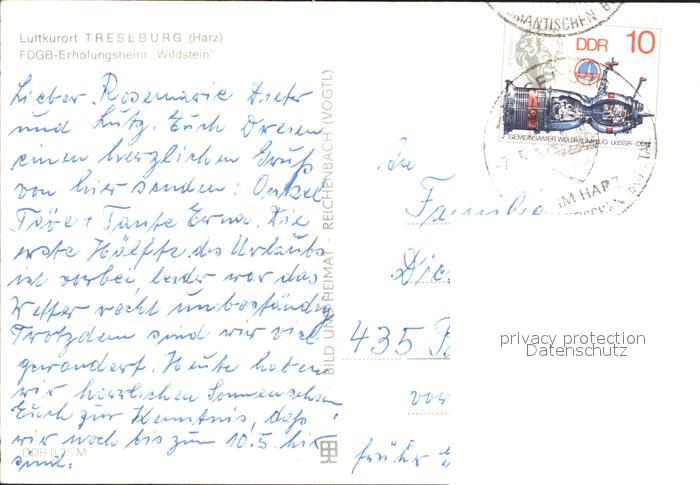 Luftkurort TRESEBURG (Harz)
FDGB-Erholungsheim „Wildstein"
Lieber Rosemarie Dieter
und Lutz. Euch Dreien
einen herzlichen Gruß
von hier senden: Onkel
+ Tante Erna. Die
erste Hälfte des Urlaubs
ist vorbei, leider war das
Wetter recht unbeständig
Trotzdem sind wir viel
gewandert. Heute haben
wir herrlichen Sonnenschein
Euch zur Kenntnis, daß
wir noch bis zum 10.5. hier
sind.
DDR 0,25 M
BILD UND HEIMAT · REICHENBACH (VOGTL)
DDR 10
GEMEINSAMER WELTRAUMFLUG UdSSR-DDR
ROMANTISCHEN
IM HARZ
An
Familie
435
früher
privacy protection
Datenschutz